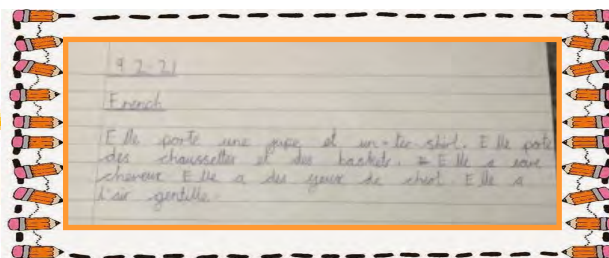 9-2-21
French
Elle porte une jupe et un tee-shirt. Elle porte
des chaussettes et des baskets. Elle a
cheveux Elle a des yeux de Elle a
l'air gentille.